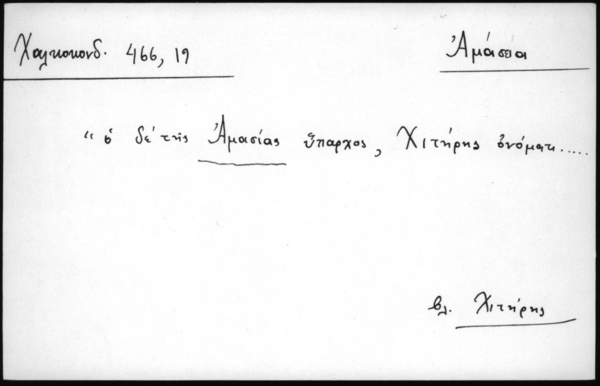 Χαλκοκονδ. 466, 19
Ἀμάσεια
“ ὁ δὲ τῆς Ἀμασίας ὕπαρχος, Χιτήρης ὀνόματι.....
βλ. Χιτήρης